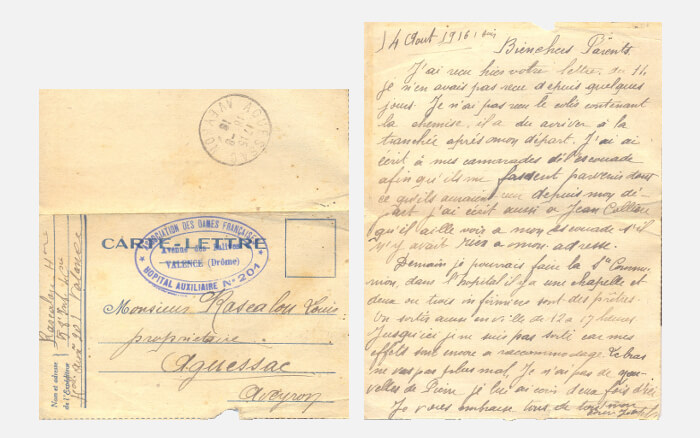 AGUESSAC
AVEYRON
CARTE-LETTRE
ASSOCIATION DES DAMES FRANÇAISES
Avenue des
VALENCE (Drôme)
HOPITAL AUXILIAIRE N° 201
Monsieur Rascalou Louis
propriétaire
Aguessac
Aveyron
Nom et adresse
de l'Expéditeur
Rascalou
201 Valence
14 Août 1916
Bien chers Parents
J'ai reçu hier votre lettre du 11.
Je n'en avais pas reçu depuis quelques
jours. Je n'ai pas reçu le colis contenant
la chemise, il a du arriver à la
tranchée après mon départ. J'ai
écrit à mes camarades de l'escouade
afin qu'ils me fassent parvenir tout
ce qu'ils auraient reçu depuis mon dé-
part, j'ai écrit aussi à Jean
qu'il aille voir a mon escouade s'il
n'y avait rien a mon adresse.
Demain je pourrais faire la Ste Commu-
nion, dans l'hopital il y a une chapelle et
deux ou trois infirmiers sont des prêtres.
On sortira aussi en ville de 12 a 17 heures
Jusqu'ici je ne suis pas sorti car mes
effets sont encore a raccommodage. Le bras
ne va pas plus mal. Je n'ai pas de nou-
velles de je lui ai écrit deux fois d'ici.
Je vous embrasse tous de